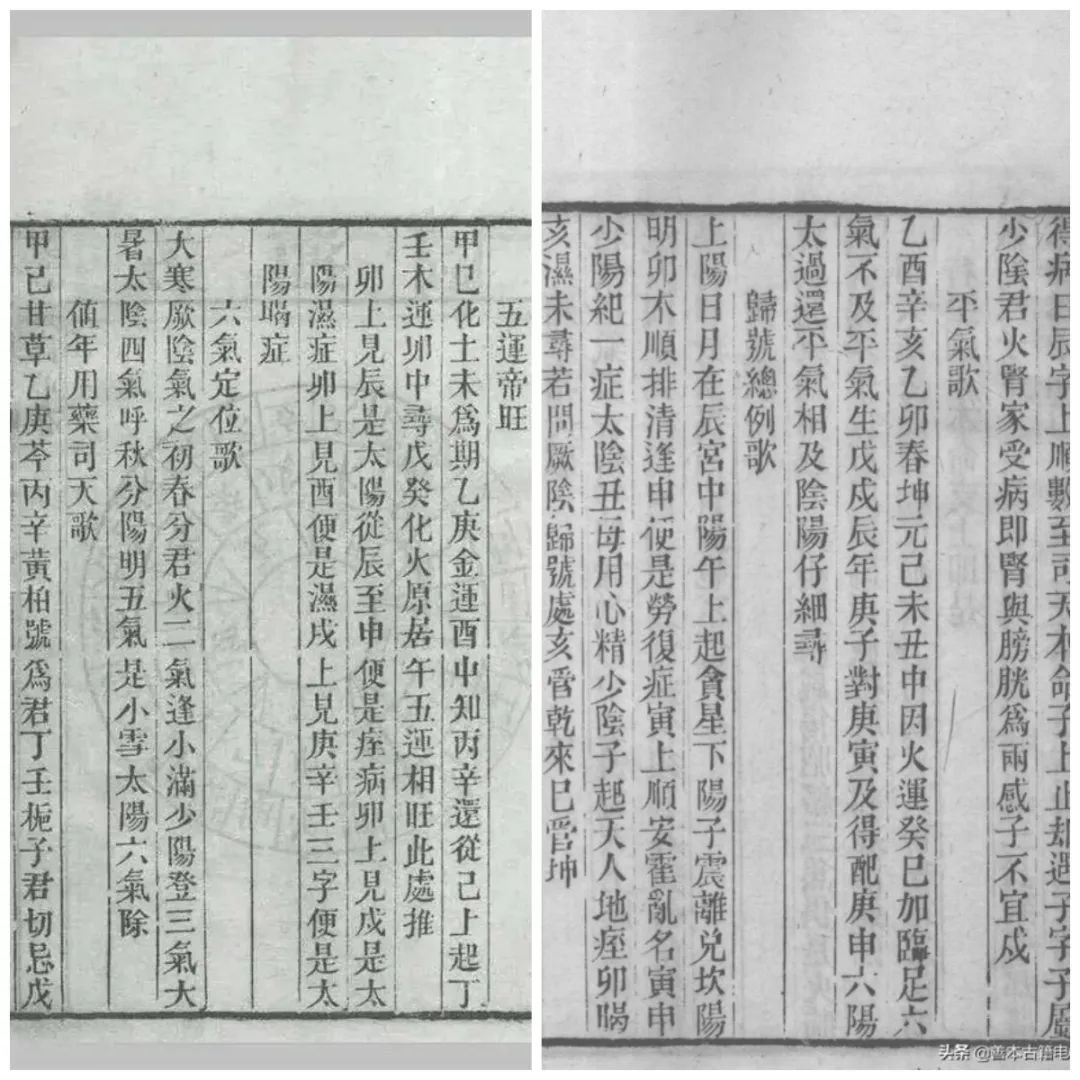 五運帝旺
甲巳化土未為期乙庚金運酉中知丙辛還從己上起丁
壬木運卯中尋戊癸化火原居午五運相旺此處推
卯上見辰是太陽從辰至申便是痓病卯上見戍是太
陽濕症卯上見酉便是濕戌上見庚辛壬三字便是太
陽暍症
六氣定位歌
大寒厥陰氣之初春分君火二氣逢小滿少陽登三氣大
暑太陰四氣呼秋分陽明五氣是小雪太陽六氣除
值年用藥司天歌
甲己甘草乙庚芩丙辛黃柏號為君丁壬梔子君切忌戊
得病日辰字上順數至司天本命子上止却遇子字子屬
少陰君火腎家受病即腎與膀胱為兩感子不宜戍
平氣歌
乙酉辛亥乙卯春坤元己未丑中因火運癸巳加臨足六
氣不及平氣生戊戍辰年庚子對庚寅及得配庚申六陽
太過還平氣相及陰陽仔細尋
歸號總例歌
上陽日月在辰宮中陽午上起貪星下陽子震離兌坎陽
明卯木順排清逢申便是勞復症寅上順安霍亂名寅申
少陽紀一症太陰丑每用心精少陰子起天人地痓卯暍
亥濕未尋若問厥陰歸號處亥管乾來巳管坤
头条 @善本古籍电